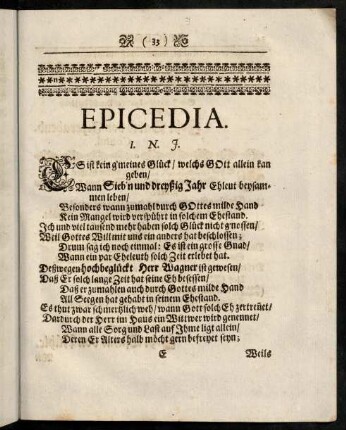 ( 33 )
EPICEDIA.
I. N. J.
ES ist kein g'meines Glück / welchs GOtt allein kan
geben /
Wann Sieb'n und dreyßig Jahr Ehleut beysam-
men leben /
Besonders wann zumahl durch GOttes milde Hand
Kein Mangel wird verspührt in solchem Ehestand.
Ich und viel tausend mehr haben solch Glück nicht gnossen /
Weil Gottes Will mit uns ein anders hat beschlossen;
Drum sag ich noch einmal: Es ist ein grosse Gnad /
Wann ein par Eheleuth solch Zeit erlebet hat.
Deßwegen hochbeglückt Herr Wagner ist gewesen /
Daß Er solch lange Zeit hat seine Eh besessen /
Daß er zumahlen auch durch Gottes milde Hand
All Seegen hat gehabt in seinem Ehestand.
Es thut zwar schmertzlich weh / wann Gott solch Eh zertreñet /
Dardurch der Herr im Haus ein Wittwer wird genennet /
Wann alle Sorg und Last auf Ihme ligt allein /
Deren Er Alters halb möcht gern befreyet seyn;
E Weils